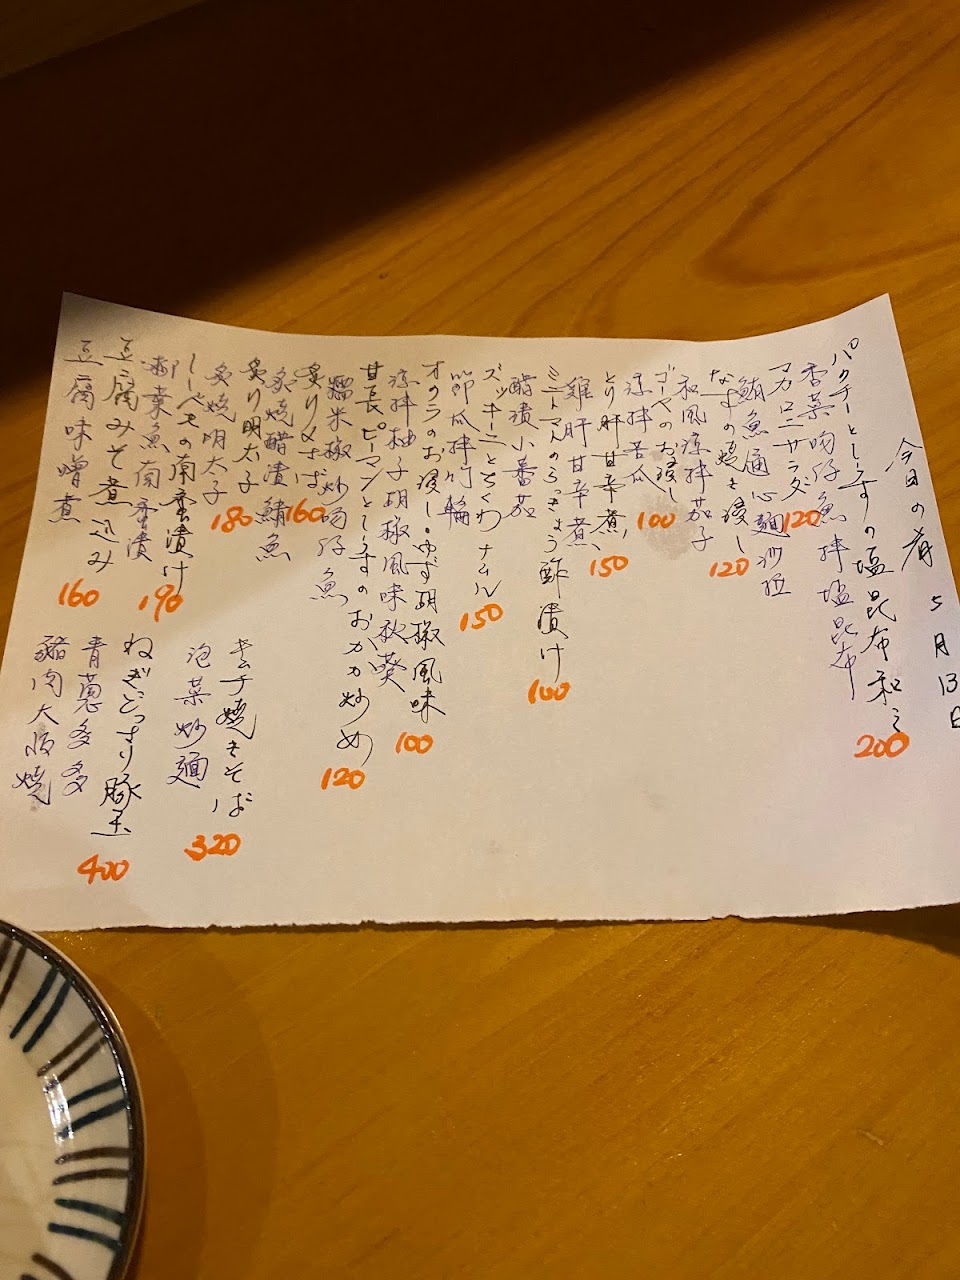 今日の肴 5月13日
パクチーとしらすの塩昆布和え
香菜吻仔魚拌塩昆布
200
マカロニサラダ
鮪魚通心麺沙拉
120
なすの焼き浸し
和風涼拌茄子
120
ゴーヤのお浸し
涼拌苦瓜
100
とり肝甘辛煮
雞肝甘辛煮
150
ミニトマトのらっきょう酢漬け
醋漬小蕃茄
100
ズッキーニとちくわナムル
節瓜拌竹輪
150
オクラのお浸し・ゆず胡椒風味
涼拌柚子胡椒風味秋葵
100
甘長ピーマンとしらすのおかか炒め
糯米椒炒吻仔魚
120
炙り〆さば
炙焼醋漬鯖魚
160
炙り明太子
炙焼明太子
180
ししゃもの南蛮漬け
柳葉魚南蛮漬
190
豆腐みそ煮込み
豆腐味噌煮
160
キムチ焼きそば
泡菜炒麺
320
ねぎどっさり豚玉
青蔥多多
豬肉大阪焼
400